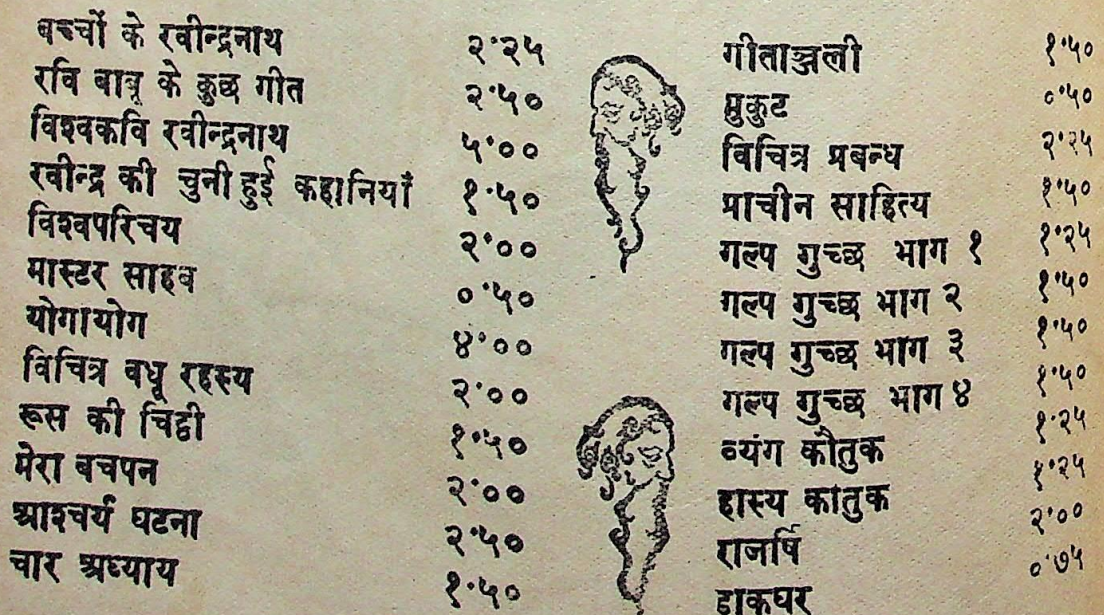 बच्चों के रवीन्द्रनाथ २·२५
रवि बाबू के कुछ गीत २·५०
विश्वकवि रवीन्द्रनाथ ५·००
रवीन्द्र की चुनी हुई कहानियाँ १·५०
विश्वपरिचय २·००
मास्टर साहब ०·५०
योगायोग ४·००
विचित्र बधू रहस्य २·००
रूस की चिट्ठी १·५०
मेरा बचपन २·००
आश्चर्य घटना २·५०
चार अध्याय १·५०
गीताञ्जली १·५०
मुकुट ०·५०
विचित्र प्रबन्ध २·२५
प्राचीन साहित्य १·५०
गल्प गुच्छ भाग १ १·२५
गल्प गुच्छ भाग २ १·५०
गल्प गुच्छ भाग ३ १·५०
गल्प गुच्छ भाग ४ १·५०
व्यंग कौतुक १·२५
हास्य कौतुक १·२५
राजर्षि २·००
डाकघर ०·७५